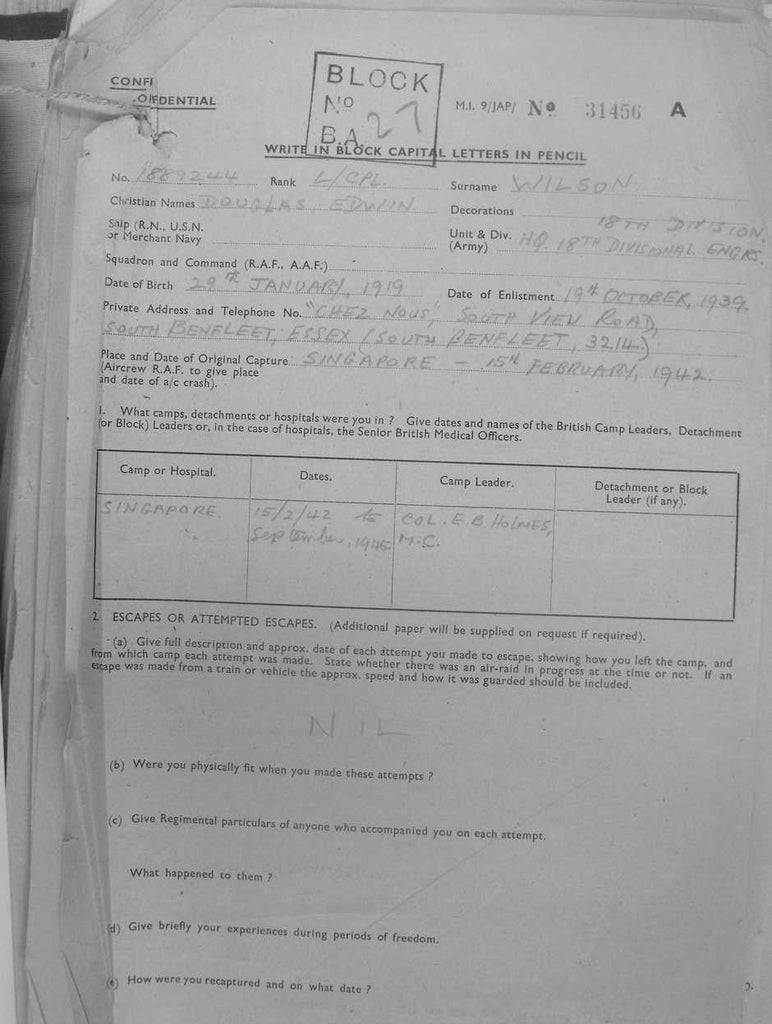 CONFI
OIFDENTIAL
BLOCK
No
B.A. 27
M.I. 9/JAP/ No. 31456 A
WRITE IN BLOCK CAPITAL LETTERS IN PENCIL
No. 1889244 Rank L/CPL. Surname WILSON
Christian Names DOUGLAS EDWIN Decorations
Ship (R.N., U.S.N. 18TH DIVISION
or Merchant Navy Unit & Div. (Army) HQ 18TH DIVISIONAL ENGRS.
Squadron and Command (R.A.F., A.A.F.)
Date of Birth 29TH JANUARY, 1919 Date of Enlistment 19th OCTOBER, 1939.
Private Address and Telephone No. "CHEZ NOUS", SOUTH VIEW ROAD,
SOUTH BENFLEET, ESSEX (SOUTH BENFLEET, 3214)
Place and Date of Original Capture SINGAPORE - 15th FEBRUARY, 1942.
(Aircrew R.A.F. to give place
and date of a/c crash).
1. What camps, detachments or hospitals were you in ? Give dates and names of the British Camp Leaders, Detachment
(or Block) Leaders or, in the case of hospitals, the Senior British Medical Officers.
Camp or Hospital. Dates. Camp Leader. Detachment or Block Leader (if any).
SINGAPORE. 15/2/42 to COL. E.B. HOLMES,
September, 1945 M.C.
2 ESCAPES OR ATTEMPTED ESCAPES. (Additional paper will be supplied on request if required).
(a) Give full description and approx. date of each attempt you made to escape, showing how you left the camp, and
from which camp each attempt was made. State whether there was an air-raid in progress at the time or not. If an
escape was made from a train or vehicle the approx. speed and how it was guarded should be included.
NIL
(b) Were you physically fit when you made these attempts ?
(c) Give Regimental particulars of anyone who accompanied you on each attempt.
What happened to them ?
(d) Give briefly your experiences during periods of freedom.
(e) How were you recaptured and on what date ?